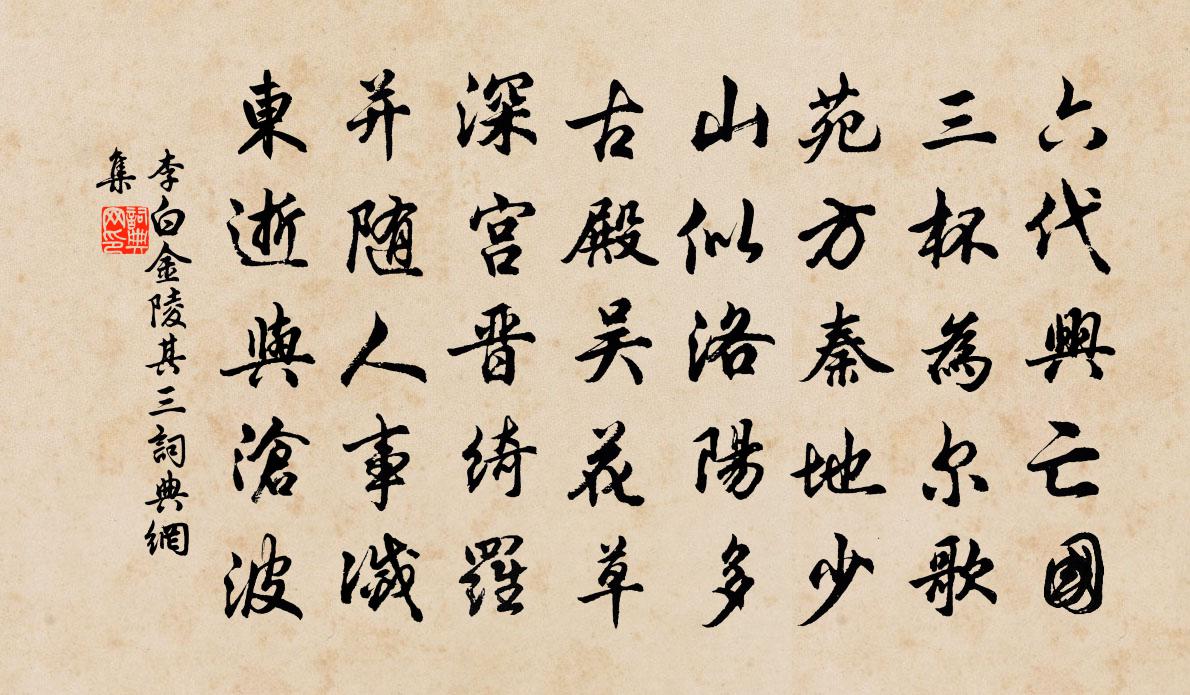 六代興亡國
三杯為尔歌
苑方秦地少
山似洛陽多
古殿吴花草
深宫晋綺羅
并随人事滅
東逝與滄波
李白金陵其三詞典網
集
詞典
网印